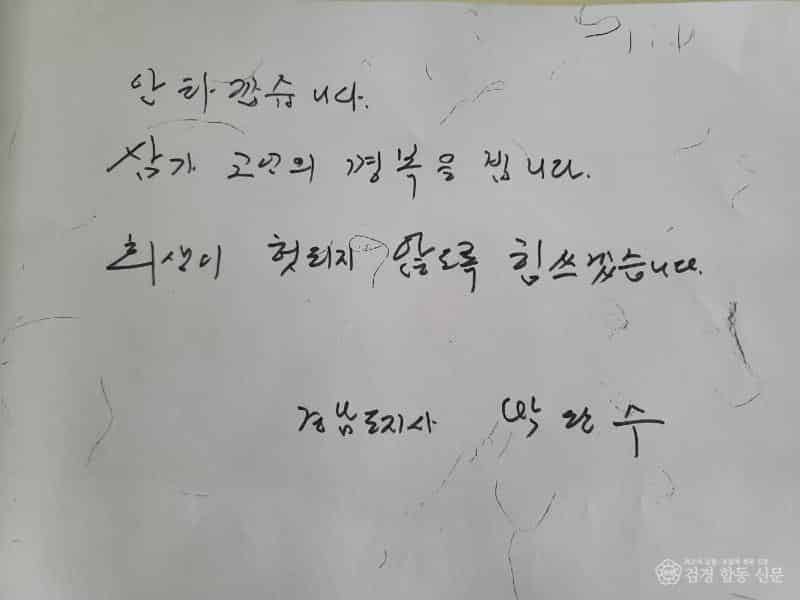 안타깝습니다.
삼가 고인의 명복을 빕니다.
희생이 헛되지 않도록 힘쓰겠습니다.
경남도지사 박완수
검경 합동 신문